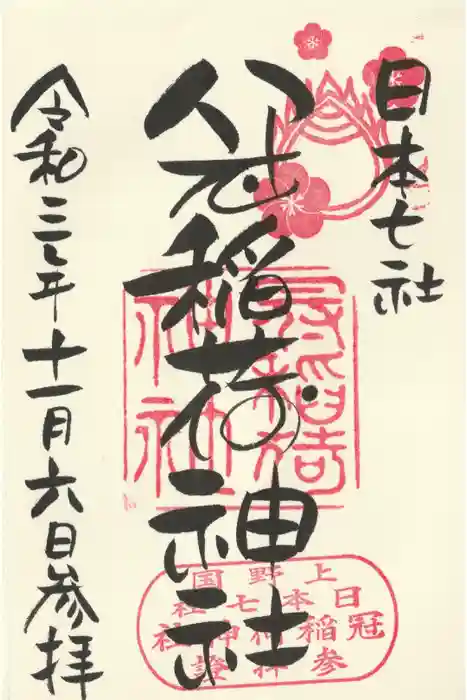 日本七社
冠稲荷神社
令和三年十一月六日参拝
冠稲荷
神社
上野国
日本七社
冠稲荷神社
参拝證